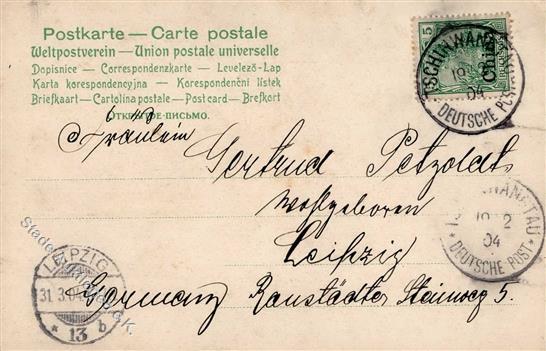 Postkarte — Carte postale
Weltpostverein — Union postale universelle
Dopisnice — Correspondenzkarte — Levelező-Lap
Karta korespondencyjna — Korespondenční lístek
Briefkaart — Cartolina postale — Post card — Brefkort
ОТКРЫТОЕ ПИСЬМО.
5
China
TSCHINWANGTAU
19 2
04
* DEUTSCHE POST *
Fräulein
Gertrud Petzoldt
wohlgeboren
Leipzig
Germany Ranstädter Steinweg 5.
19 2
04
* DEUTSCHE POST *
LEIPZIG
31.3.04
* 13 b